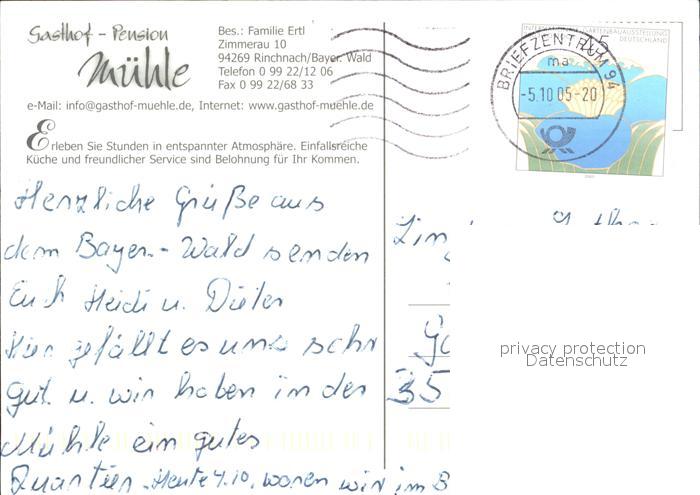 Gasthof - Pension
Mühle
Bes.: Familie Ertl
Zimmerau 10
94269 Rinchnach/Bayer. Wald
Telefon 0 99 22/12 06
Fax 0 99 22/68 33
e-Mail: info@gasthof-muehle.de, Internet: www.gasthof-muehle.de
Erleben Sie Stunden in entspannter Atmosphäre. Einfallsreiche
Küche und freundlicher Service sind Belohnung für Ihr Kommen.
BRIEFZENTRUM 94
ma
-5.10 05-20
INTERNATIONALE GARTENBAUAUSSTELLUNG
DEUTSCHLAND
Herzliche Grüße aus
dem Bayer.-Wald senden
Euch Heidi u. Dieter
Hier gefällt es uns sehr
gut. u. wir haben in der
Mühle ein gutes
Quartier. Heute 4.10. waren wir im B
35
privacy protection
Datenschutz